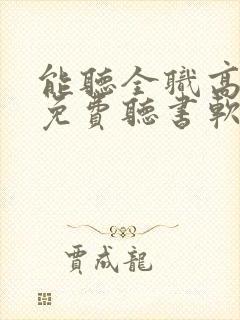 能聽全職高
免費聽書軟
賈成龍